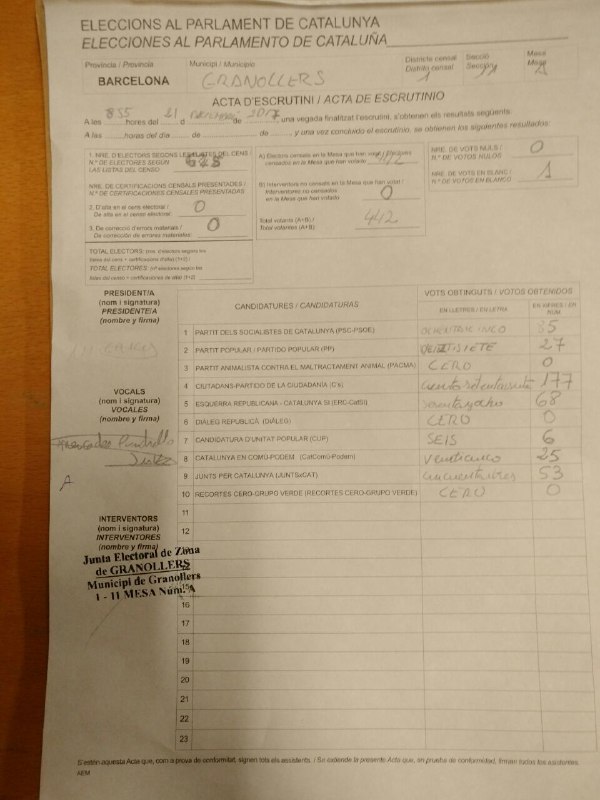 ELECCIONS AL PARLAMENT DE CATALUNYA
ELECCIONES AL PARLAMENTO DE CATALUÑA
Província / Provincia
BARCELONA
Municipi / Municipio
GRANOLLERS
Districte censal
Distrito censal
1
Secció
Sección
11
Mesa
Mesa
A
ACTA D'ESCRUTINI / ACTA DE ESCRUTINIO
A les 855 hores del 21 d de 2017, una vegada finalitzat l'escrutini, s'obtenen els resultats següents:
A las horas del día de de , y una vez concluido el escrutinio, se obtienen los siguientes resultados:
1. NRE. D'ELECTORS SEGONS LES LLISTES DEL CENS /
N.º DE ELECTORES SEGÚN
LAS LISTAS DEL CENSO
NRE. DE CERTIFICACIONS CENSALS PRESENTADES /
N.º DE CERTIFICACIONES CENSALES PRESENTADAS
2. D'alta en el cens electoral:
De alta en el censo electoral:
0
3. De correcció d'errors materials /
De corrección de errores materiales:
0
TOTAL ELECTORS: (nre. d'electors segons les
llistes del cens + certificacions d'alta) (1+2) /
TOTAL ELECTORES: (nº electores según las
listas del censo + certificaciones de alta) (1+2)
A) Electors censats en la Mesa que han votat / Electores
censados en la Mesa que han votado
442
B) Interventors no censats en la Mesa que han votat /
Interventores no censados
en la Mesa que han votado
0
Total votants (A+B) /
Total votantes (A+B):
442
NRE. DE VOTS NULS /
N.º DE VOTOS NULOS
0
NRE. DE VOTS EN BLANC /
N.º DE VOTOS EN BLANCO
1
PRESIDENT/A
(nom i signatura)
PRESIDENTE/A
(nombre y firma)
VOCALS
(nom i signatura)
VOCALES
(nombre y firma)
A
INTERVENTORS
(nom i signatura)
INTERVENTORES
(nombre y firma)
Junta Electoral de Zona
de GRANOLLERS
Municipi de Granollers
1 - 11 MESA Núm. A
CANDIDATURES / CANDIDATURAS
VOTS OBTINGUTS / VOTOS OBTENIDOS
EN LLETRES / EN LETRA
EN XIFRES / EN NÚM.
1 PARTIT DELS SOCIALISTES DE CATALUNYA (PSC-PSOE) OCHENTA CINCO 85
2 PARTIT POPULAR / PARTIDO POPULAR (PP) VEINTISIETE 27
3 PARTIT ANIMALISTA CONTRA EL MALTRACTAMENT ANIMAL (PACMA) CERO 0
4 CIUTADANS-PARTIDO DE LA CIUDADANÍA (C's) 177
5 ESQUERRA REPUBLICANA - CATALUNYA SÍ (ERC-CatSí) sesentayocho 68
6 DIÀLEG REPUBLICÀ (DIÀLEG) CERO 0
7 CANDIDATURA D'UNITAT POPULAR (CUP) SEIS 6
8 CATALUNYA EN COMÚ-PODEM (CatComú-Podem) Venticinco 25
9 JUNTS PER CATALUNYA (JUNTSxCAT) cincuentaitres 53
10 RECORTES CERO-GRUPO VERDE (RECORTES CERO-GRUPO VERDE) CERO 0
11
12
15
16
17
18
19
20
21
22
23
S'estén aquesta Acta que, com a prova de conformitat, signen tots els assistents. / Se extiende la presente Acta que, en prueba de conformidad, firman todos los asistentes.
AEM